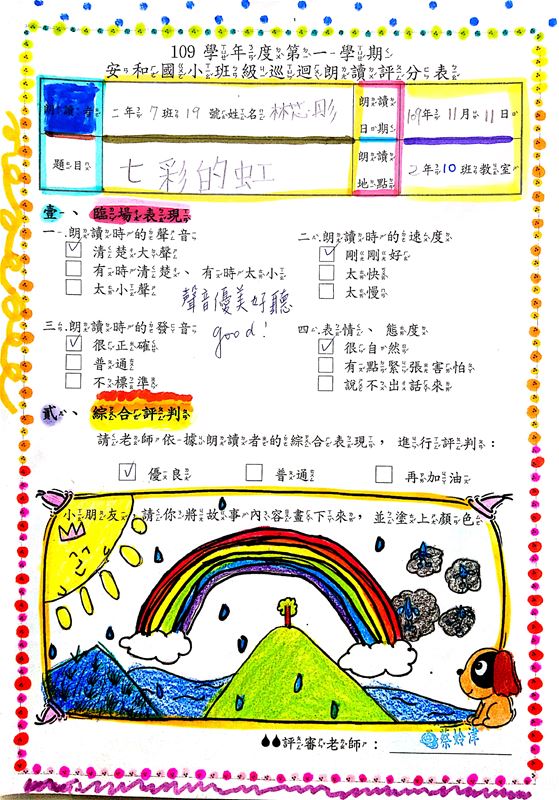 109學年度第一學期
安和國小班級巡迴朗讀評分表
朗讀者 二年7班19號姓名林芯彤 朗讀日期 109年11月11日
題目 七彩的虹 朗讀地點 2年10班教室
壹、臨場表現
一、朗讀時的聲音 二、朗讀時的速度
☑清楚大聲 ☑剛剛好
☐有時清楚、有時太小 ☐太快
☐太小聲 ☐太慢
聲音優美好聽
good!
三、朗讀時的發音 四、表情、態度
☑很正確 ☑很自然
☐普通 ☐有點緊張害怕
☐不標準 ☐說不出話來
貳、綜合評判
請老師依據朗讀者的綜合表現，進行評判：
☑優良 ☐普通 ☐再加油
小朋友，請你將故事內容畫下來，並塗上顏色
評審老師：